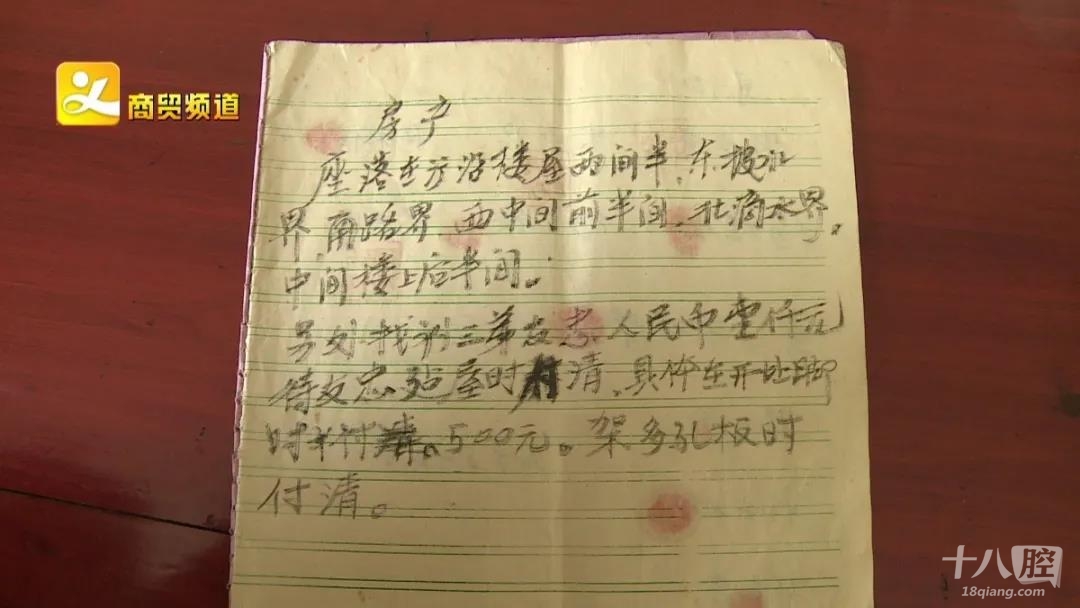 商贸频道
房产
座落在方沿楼屋两间半，东披水
界，南路界，西中间前半间，北滴水界，
中间楼上后半间。
另外找训三弟友忠人民币壹仟元
待友忠 屋时付清，具体在开地脚
时 付 500元。架多孔板时
付清。
十八腔
18qiang.com